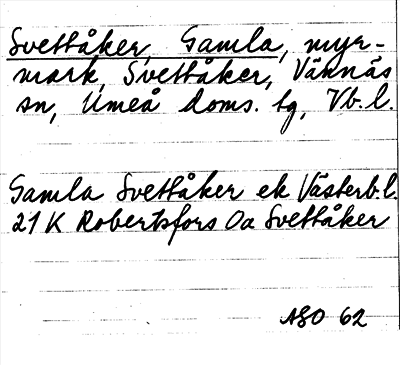 Svettåker, Gamla, myr-
mark, Svettåker, Vännäs
sn, Umeå doms. tg, Vb. l.
Gamla Svettåker ek Västerb.l.
21 K Robertsfors Oa Svettåker
ASO 62